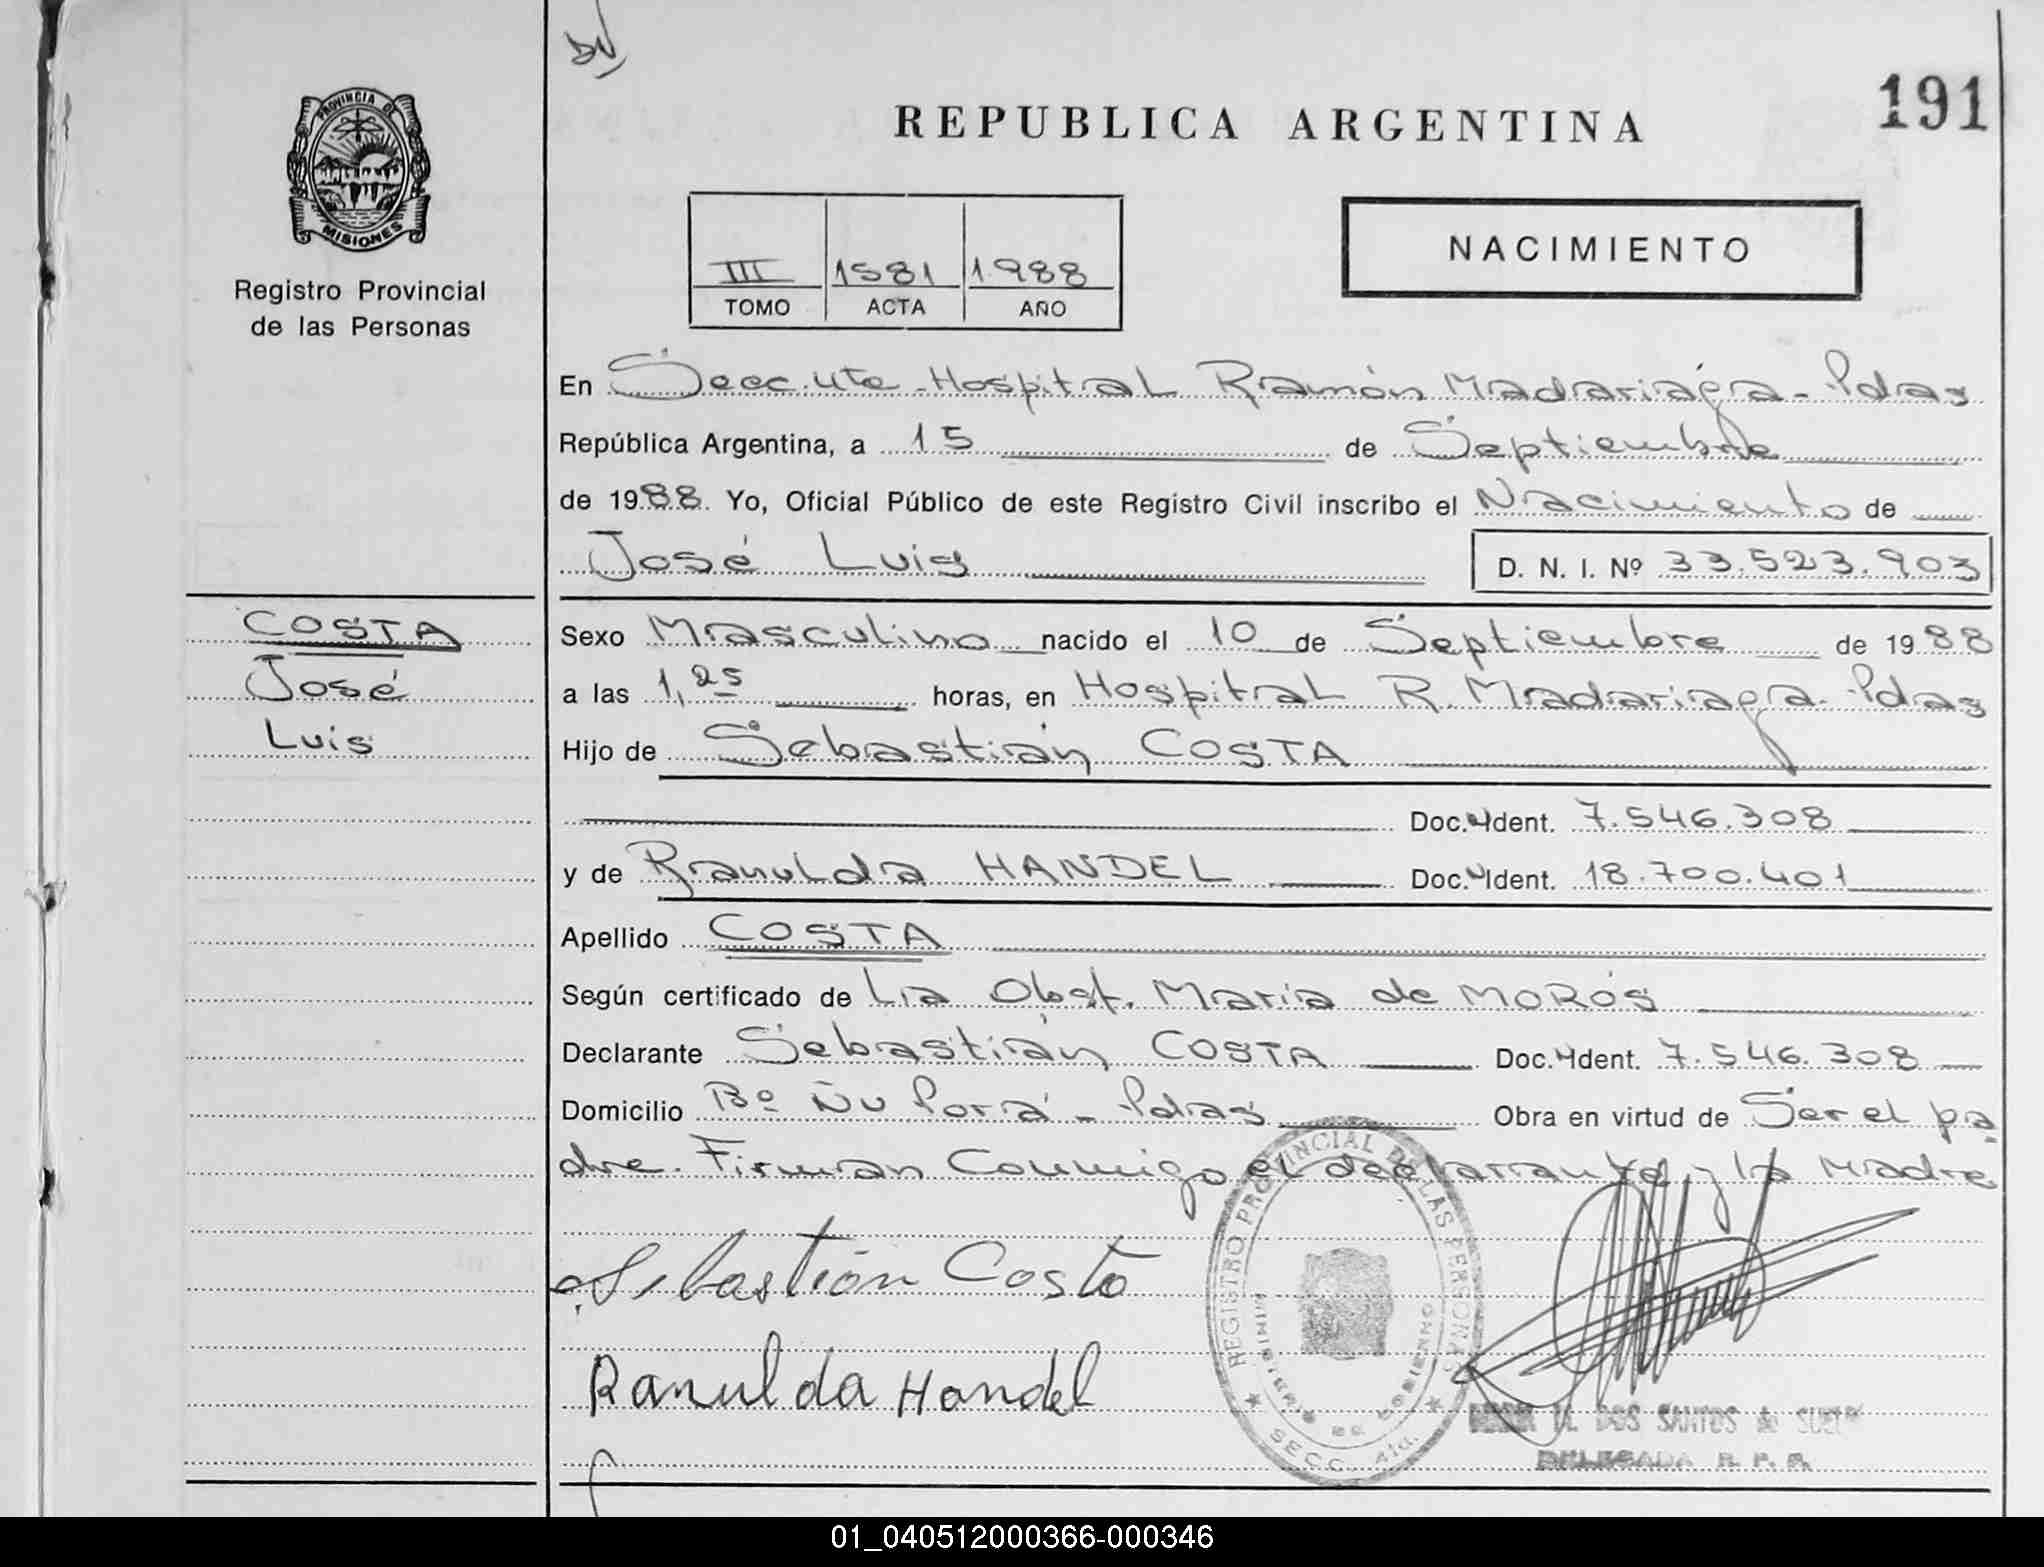 DN
191
REPUBLICA ARGENTINA
PROVINCIA DE
MISIONES
Registro Provincial
de las Personas
III 1581 1988
TOMO ACTA AÑO
NACIMIENTO
En Secc. 4ta - Hospital Ramón Madariaga - Pdas
República Argentina, a 15 de Septiembre
de 1988. Yo, Oficial Público de este Registro Civil inscribo el Nacimiento de
José Luis D. N. I. Nº 33.523.903
COSTA
José
Luis
Sexo Masculino nacido el 10 de Septiembre de 1988
a las 1,25 horas, en Hospital R. Madariaga - Pdas
Hijo de Sebastián COSTA
Doc. Ident. 7.546.308
y de Ranulda HANDEL Doc. Ident. 18.700.401
Apellido COSTA
Según certificado de Lia Obst. María de MORÓS
Declarante Sebastián COSTA Doc. Ident. 7.546.308
Domicilio Bº Ñu Porá - Pdas Obra en virtud de Ser el pa
dre. Firman Conmigo el declarante y la Madre
Sebastián Costa
Ranulda Handel
REGISTRO PROVINCIAL DE LAS PERSONAS
MINISTERIO DE GOBIERNO
SECC. 4ta.
DOS SANTOS de
DELEGADA R. P. P.
01_040512000366-000346